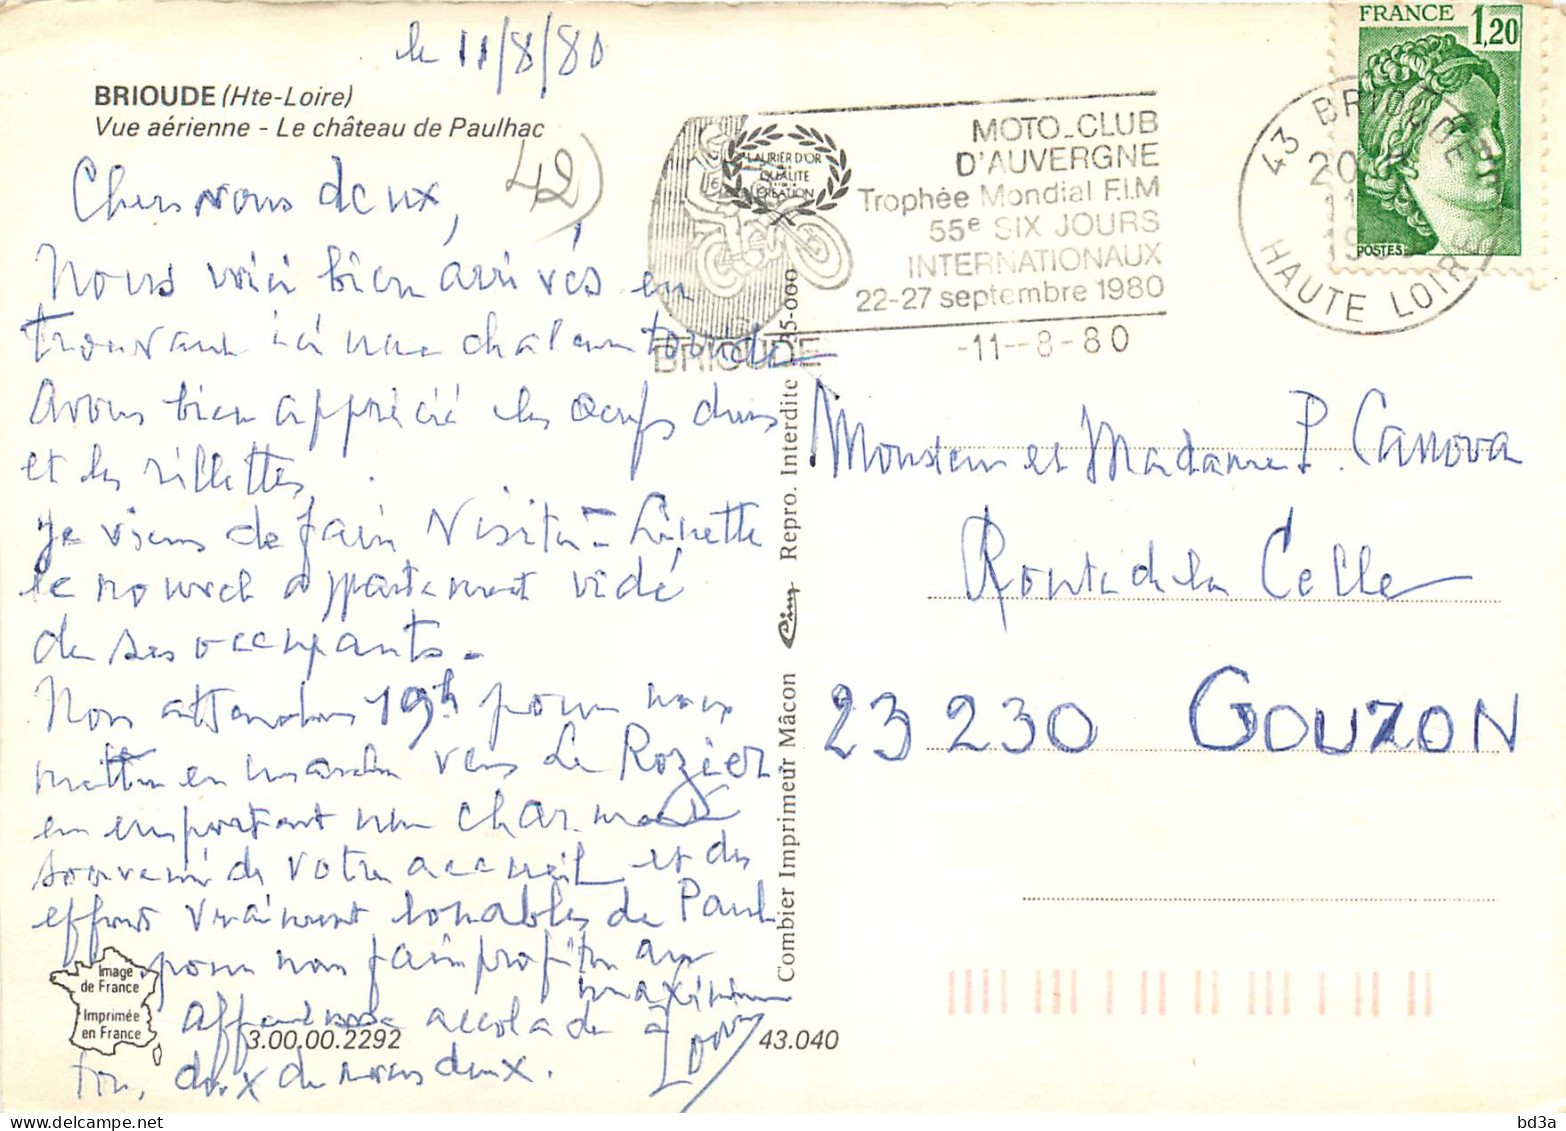 le 11/8/80
BRIOUDE (Hte-Loire)
Vue aérienne - Le château de Paulhac
42
Chers vous deux,
Nous voici bien arrivés en
trouvant ici une chaleur lourde
Avons bien apprécié les œufs durs
et les rillettes.
Je viens de faire visiter à Linette
le nouvel appartement vidé
de ses occupants.
Nous attendons 19h pour nous
mettre en marche vers Le Rozier
en emportant un charmant
souvenir de votre accueil et des
efforts vraiment louables de Paul
pour nous faire profiter au
maximum
Affectueuse accolade à
tous deux de nous deux.
Image
de France
Imprimée
en France
3.00.00.2292
43.040
Combier Imprimeur Mâcon
Cim
Repro. Interdite
35-000
LAURIER D'OR
DE LA
QUALITÉ
CRÉATION
BRIOUDE
MOTO-CLUB
D'AUVERGNE
Trophée Mondial F.I.M
55e SIX JOURS
INTERNATIONAUX
22-27 septembre 1980
-11--8-80
FRANCE 1,20
POSTES
43 BRIOUDE
HAUTE LOIRE
Monsieur et Madame P. Canova
Route de la Celle
23 230 GOUZON
bd3a